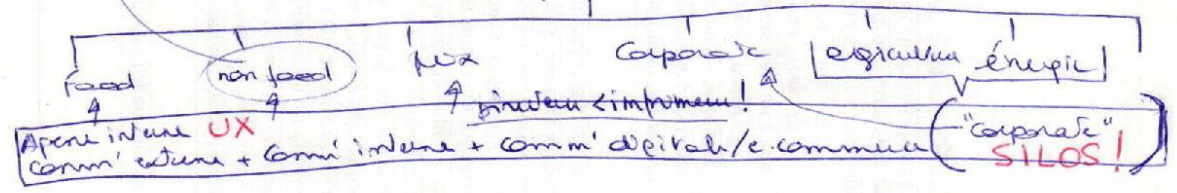 food non food Corporate agriculture énergie
Agence interne UX
comm' externe + comm' interne + comm' digitale/e.commerce
"corporate"
SILOS!